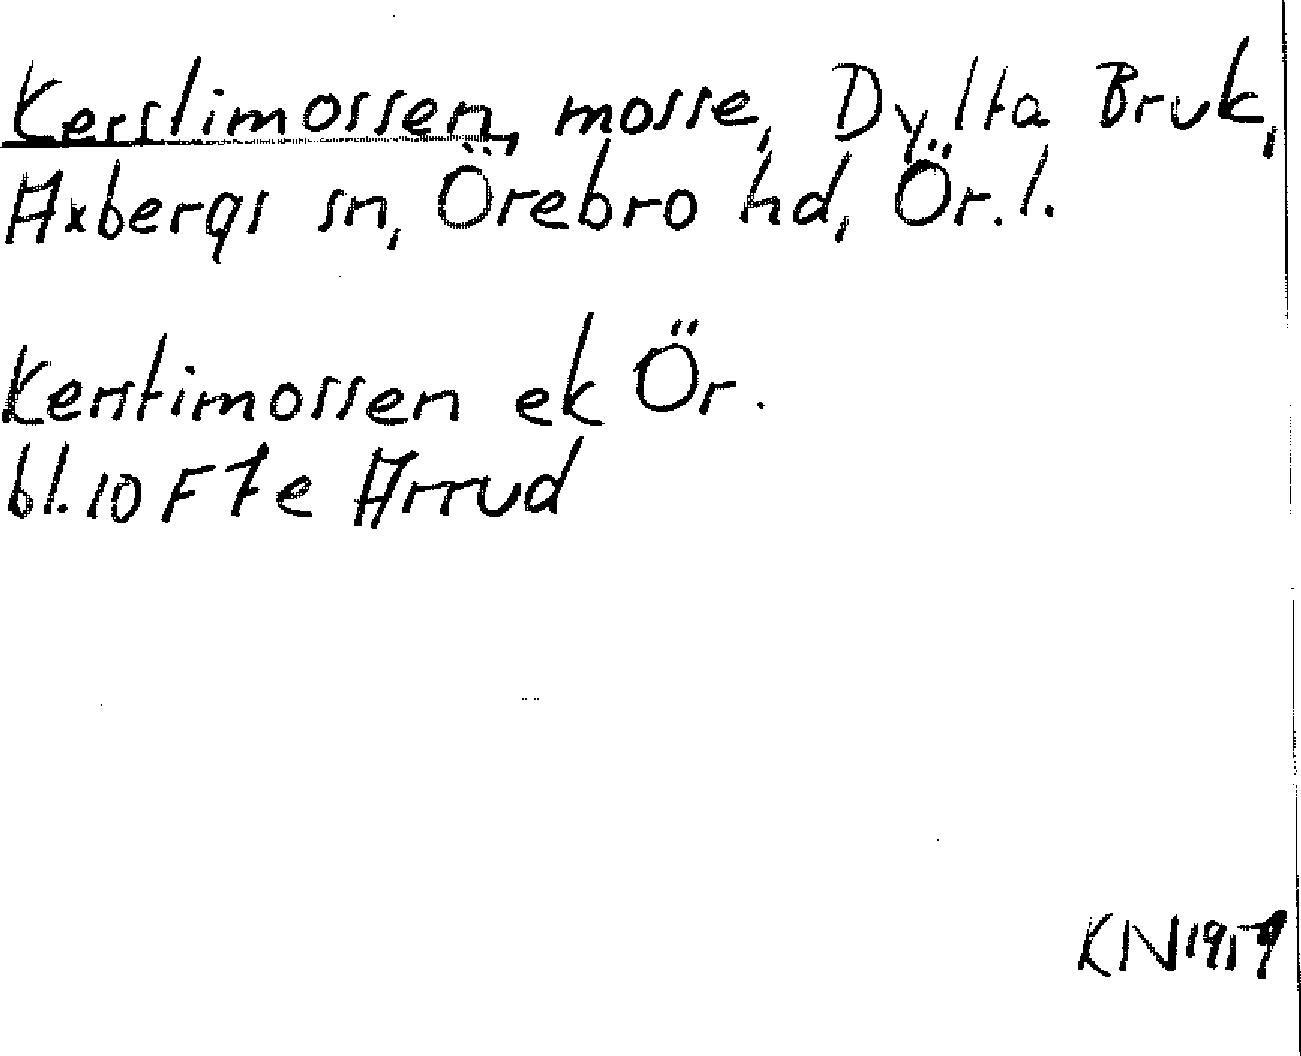 Kerstimossen, mosse, Dylta Bruk,
Axbergs sn, Örebro hd, Ör. l.
Kerstimossen ek Ör.
bl. 10 F 7 e Arrud
KN 1959